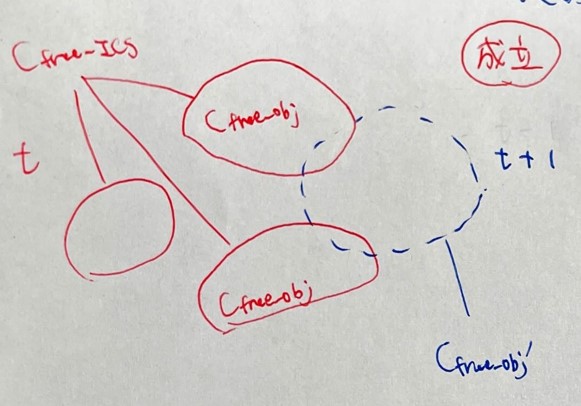 Cfree-ICS
成立
Cfree-obj
t
t+1
Cfree-obj
Cfree-obj'